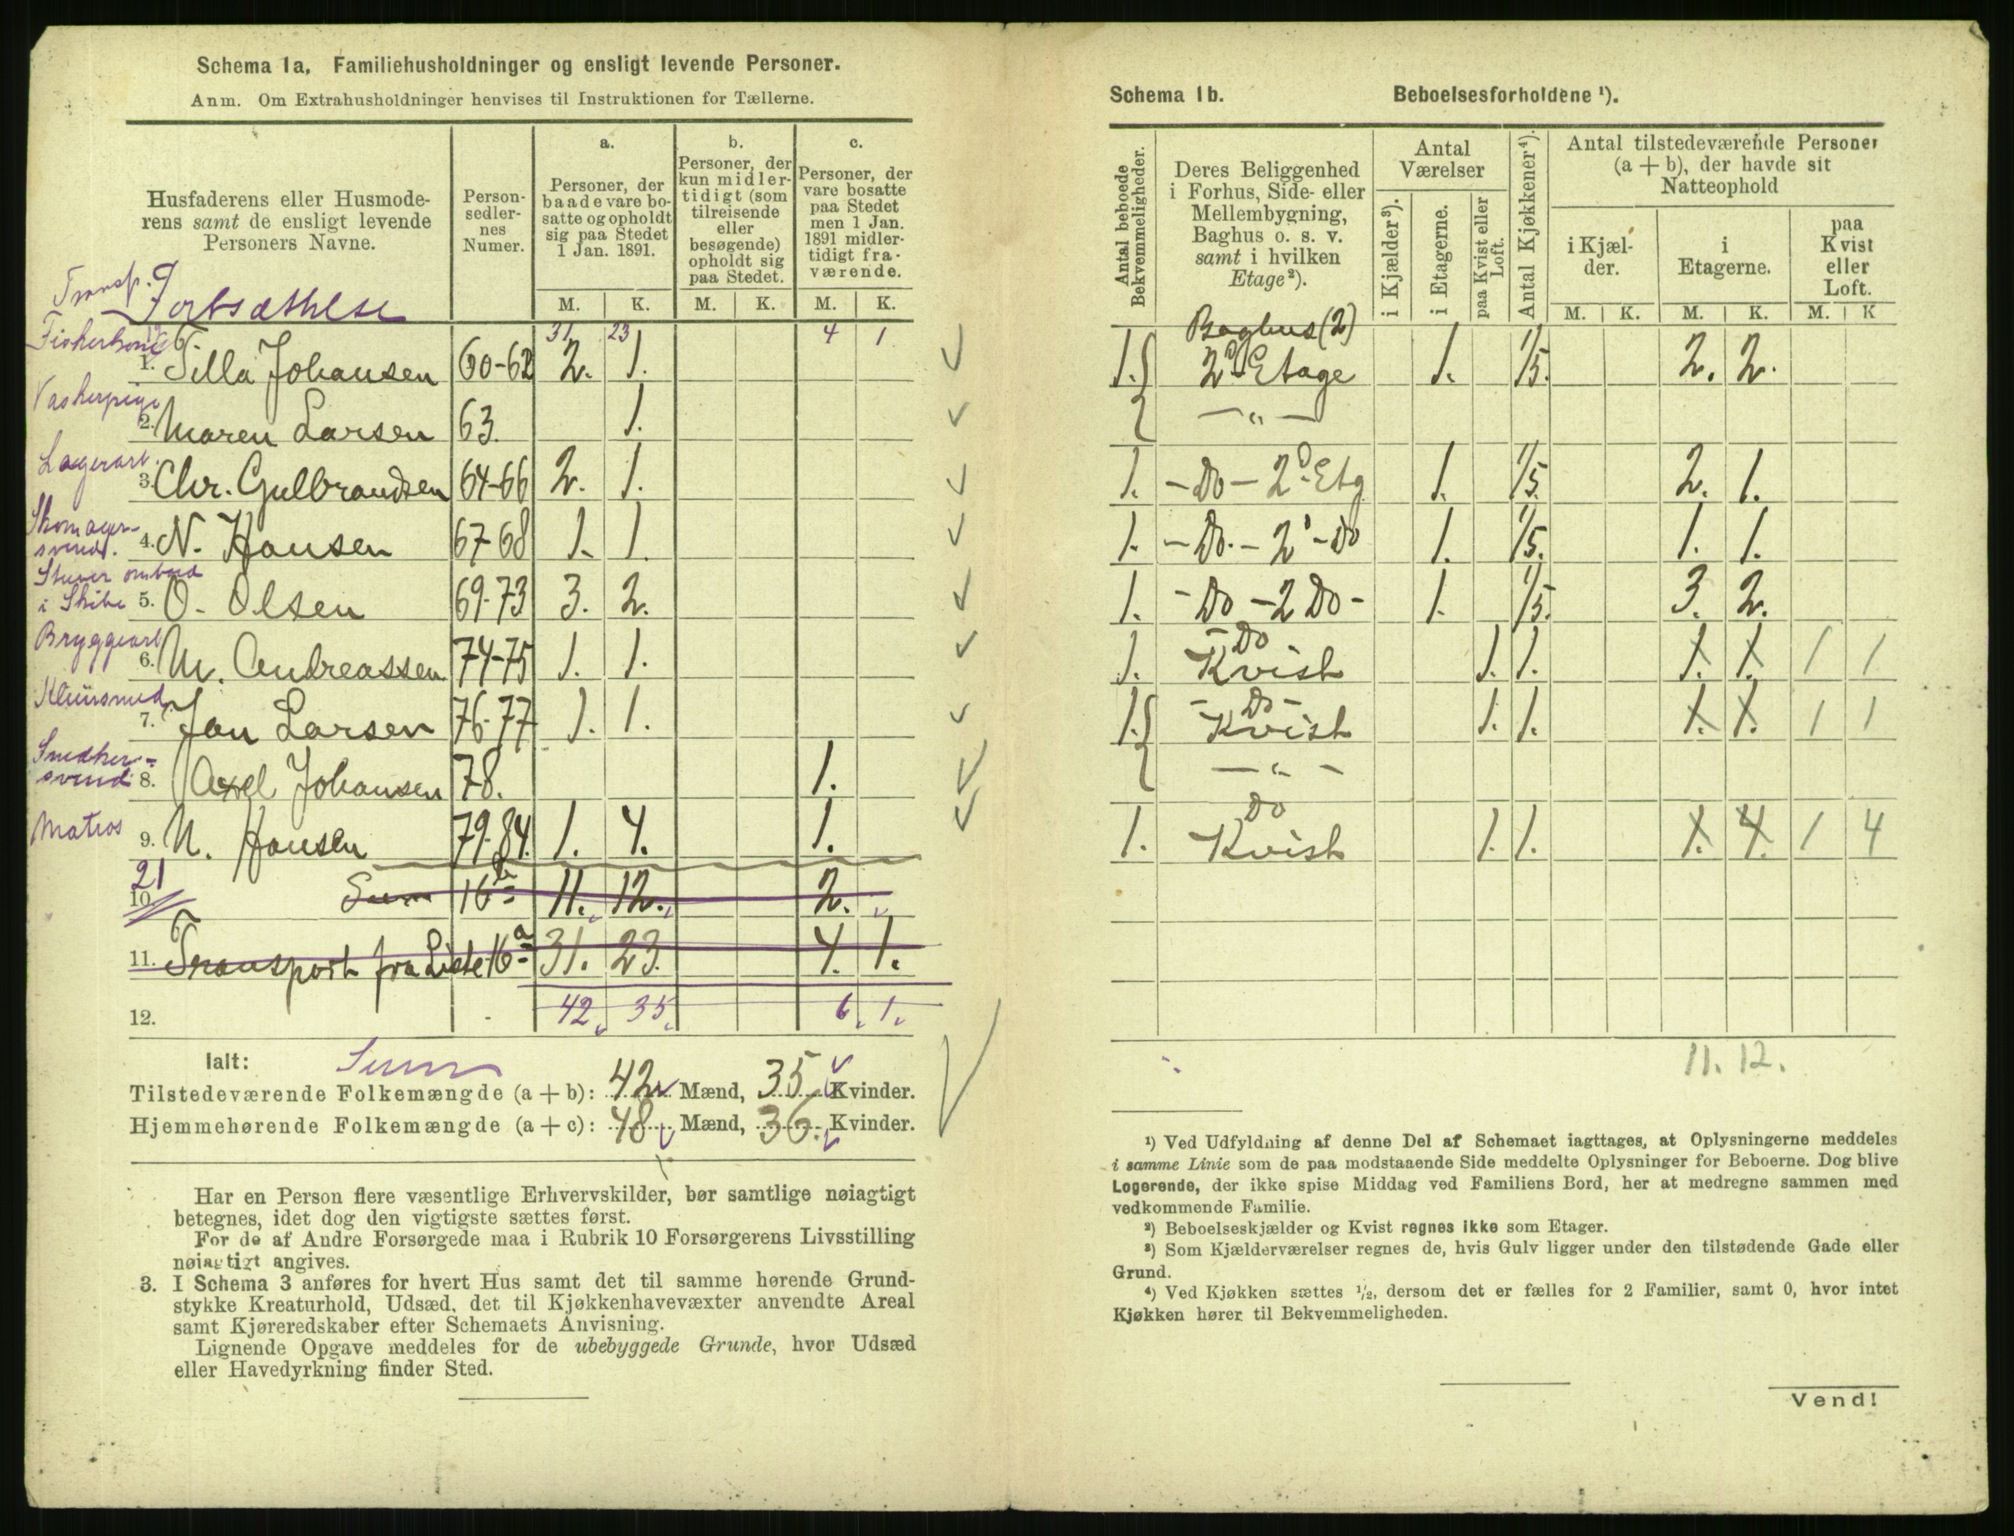 Schema 1a. Familiehusholdninger og ensligt levende Personer.
Anm. Om Extrahusholdninger henvises til Instruktionen for Tællerne.
Husfaderens eller Husmoderens samt de ensligt levende Personers Navne.
Personsedlernes Numer.
a. Personer, der baade vare bosatte og opholdt sig paa Stedet 1 Jan. 1891.
b. Personer, der kun midlertidigt (som tilreisende eller besøgende) opholdt sig paa Stedet.
c. Personer, der vare bosatte paa Stedet men 1 Jan. 1891 midlertidigt fraværende.
M. K. M. K. M. K.
Transp.
Fortsættelse
31 23 4 1
1. Tilla Johansen 60-62 2. 1.
Vaskerpige
2. Maren Larsen 63. 1.
Lagerarb.
3. Chr. Gulbrandsen 64-66 2. 1.
Skomagersvend.
4. N. Hansen 67-68 1. 1.
Stuer ombord i Skibe
5. O. Olsen 69-73 3. 2.
Bryggearb
6. M. Andreassen 74-75 1. 1.
Kleinsmed
7. Jan Larsen 76-77 1. 1.
Snedkersvend
8. Axel Johansen 78. 1.
Matros
9. N. Hansen 79-84. 1. 4. 1.
21
10. Sum 16b 11. 12. 2.
11. Transport fra Liste 16a 31. 23. 4. 1.
12. 42. 35. 6. 1.
Ialt: Sum
Tilstedeværende Folkemængde (a + b): 42 Mænd, 35 Kvinder.
Hjemmehørende Folkemængde (a + c): 48 Mænd, 36. Kvinder.
Har en Person flere væsentlige Erhvervskilder, bør samtlige nøiagtigt
betegnes, idet dog den vigtigste sættes først.
For de af Andre Forsørgede maa i Rubrik 10 Forsørgerens Livsstilling
nøiagtigt angives.
3. I Schema 3 anføres for hvert Hus samt det til samme hørende Grund-
stykke Kreaturhold, Udsæd, det til Kjøkkenhavevæxter anvendte Areal
samt Kjøreredskaber efter Schemaets Anvisning.
Lignende Opgave meddeles for de ubebyggede Grunde, hvor Udsæd
eller Havedyrkning finder Sted.
Schema 1b. Beboelsesforholdene ¹).
Antal beboede Bekvemmeligheder.
Deres Beliggenhed i Forhus, Side- eller Mellembygning, Baghus o. s. v. samt i hvilken Etage²).
Antal Værelser
i Kjælder³).
i Etagerne.
paa Kvist eller Loft.
Antal Kjøkkener⁴).
Antal tilstedeværende Personer (a + b), der havde sit Natteophold
i Kjælder.
i Etagerne.
paa Kvist eller Loft.
M. K. M. K. M. K
Baghus (2)
1. 2d Etage 1. 1/5. 2. 2.
— „ —
1. - Do - 2d Etg 1. 1/5. 2. 1.
1. - Do. - 2 - Do 1. 1/5. 1. 1.
1. - Do - 2 Do - 1. 1/5. 3. 2.
1. - Do Kvist 1. 1. 1. 1. 1 1
1. - Do - Kvist 1. 1. 1. 1. 1 1
— „ —
1. Do Kvist 1. 1. 1. 4. 1 4
11. 12.
¹) Ved Udfyldning af denne Del af Schemaet iagttages, at Oplysningerne meddeles
i samme Linie som de paa modstaaende Side meddelte Oplysninger for Beboerne. Dog blive
Logerende, der ikke spise Middag ved Familiens Bord, her at medregne sammen med
vedkommende Familie.
²) Beboelseskjælder og Kvist regnes ikke som Etager.
³) Som Kjælderværelser regnes de, hvis Gulv ligger under den tilstødende Gade eller
Grund.
⁴) Ved Kjøkken sættes ½, dersom det er fælles for 2 Familier, samt 0, hvor intet
Kjøkken hører til Bekvemmeligheden.
Vend!